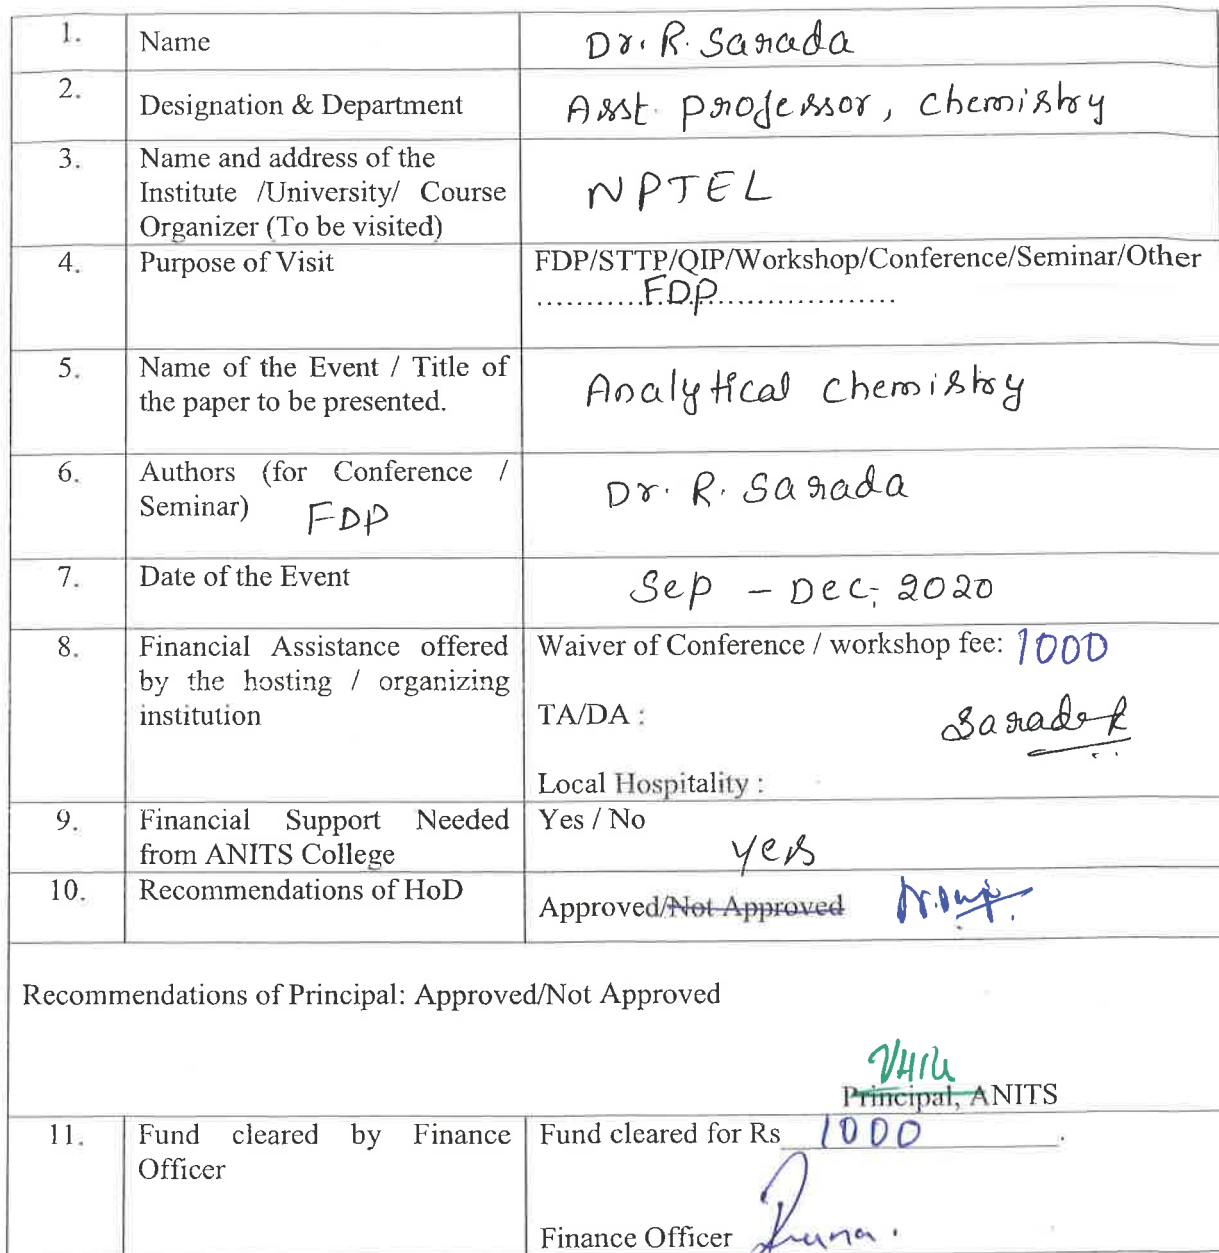 1. Name Dr. R. Sarada
2. Designation & Department Asst. professor, chemistry
3. Name and address of the
Institute /University/ Course
Organizer (To be visited)
NPTEL
4. Purpose of Visit FDP/STTP/QIP/Workshop/Conference/Seminar/Other
...........FDP.....................
5. Name of the Event / Title of
the paper to be presented.
Analytical chemistry
6. Authors (for Conference /
Seminar) FDP
Dr. R. Sarada
7. Date of the Event Sep - Dec, 2020
8. Financial Assistance offered
by the hosting / organizing
institution
Waiver of Conference / workshop fee: 1000
TA/DA :
Local Hospitality :
9. Financial Support Needed
from ANITS College
Yes / No
yes
10. Recommendations of HoD Approved/Not Approved
Recommendations of Principal: Approved/Not Approved
Principal, ANITS
11. Fund cleared by Finance
Officer
Fund cleared for Rs 1000.
Finance Officer